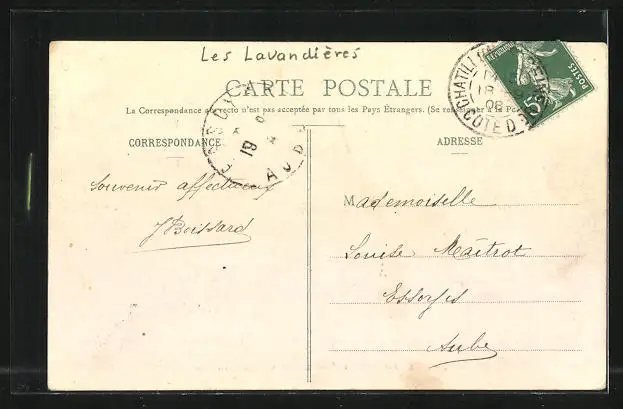 Les Lavandières
CARTE POSTALE
La Correspondance au recto n'est pas acceptée par tous les Pays Étrangers. (Se renseigner à la Poste)
CORRESPONDANCE
ADRESSE
POSTES
5
CHATILL
COTE D'OR
18
08
19
AUBE
Souvenir affectueux
J Boissard
Mademoiselle
Louise Maîtrot
Essoyes
Aube